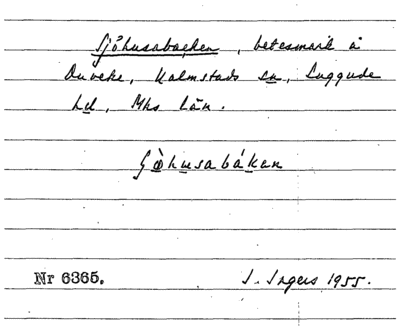 Sjöhusabacken, betesmark å
Duveke, Kalmstads sn, Luggude
hd, Mhs län.
Nr 6365.
I. Ingers 1955.